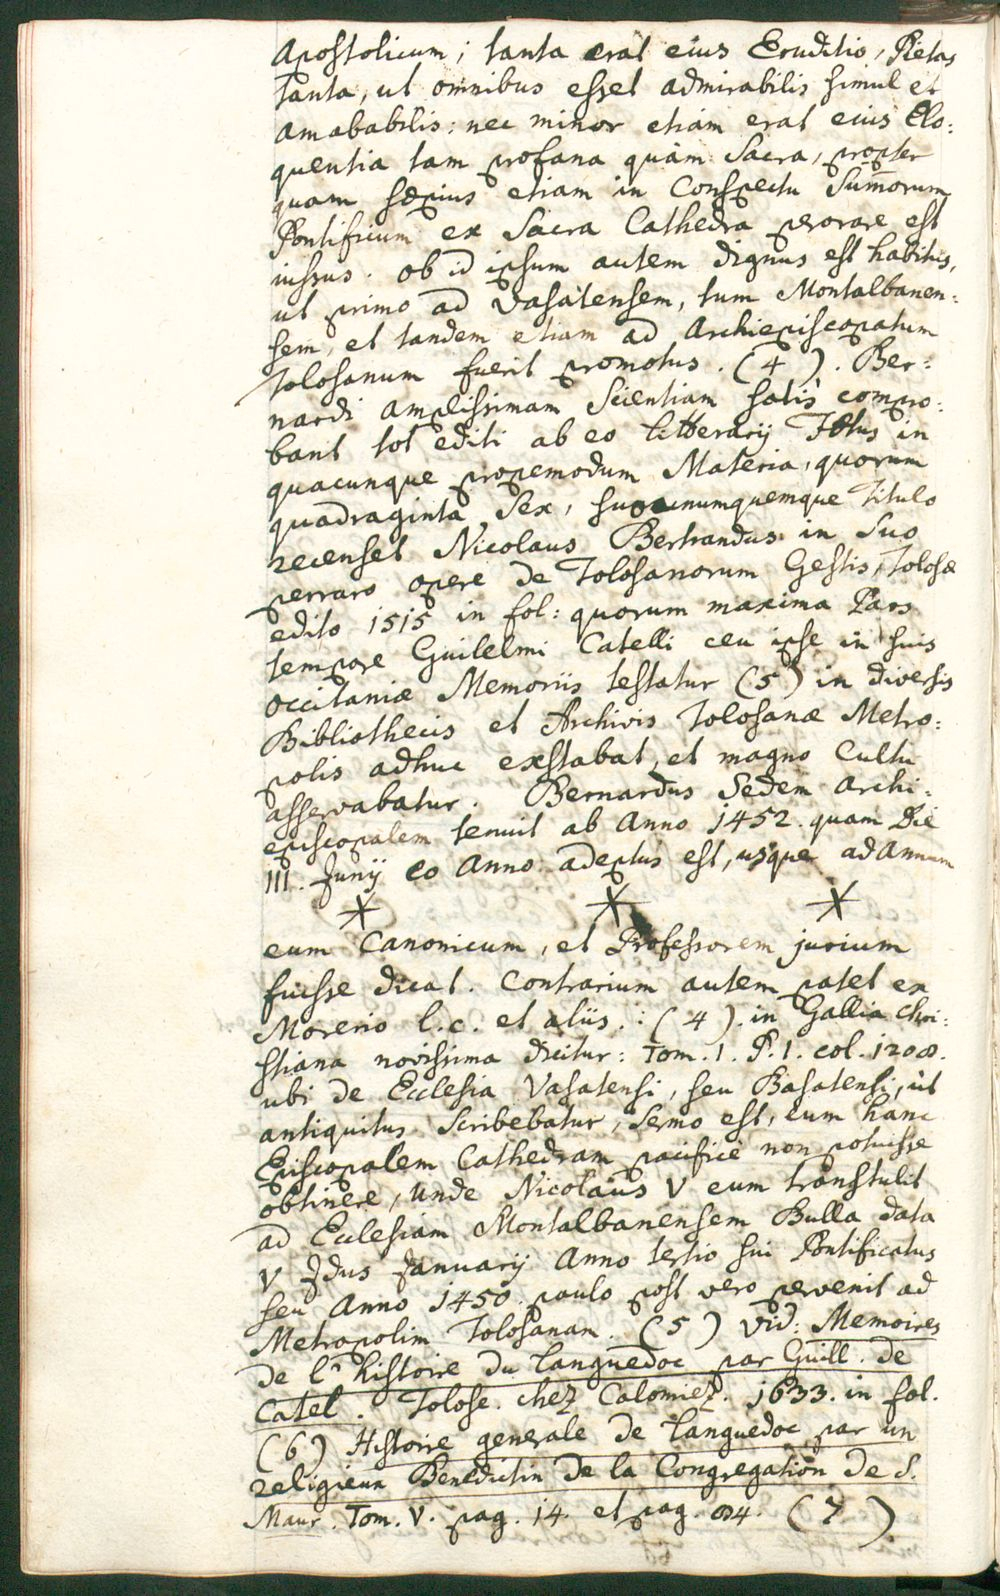 Apostolicum; tanta erat eius Eruditio, Pietas
tanta, ut omnibus esset admirabilis simul et
amababilis: nec minor etiam erat eius Elo:
quentia tam profana quàm Sacra, propter
quam sæpius etiam in Conspectu Sum̄orum
Pontificum ex Sacra Cathedra perorare est
iussus. ob id ipsum autem dignus est habitus,
ut primo ad Vasatensem, tum Montalbanen:
sem, et tandem etiam ad Archiepiscopatum
Tolosanum fuerit promotus. (4). Ber:
nardi amplissimam Scientiam satis compro:
bant tot editi ab eo litterarij Fœtus in
quacunque propemodum Materia, quorum
quadraginta Sex, suo unumquemque Titulo
recenset Nicolaus Bertrandus in Suo
perraro opere de Tolosanorum Gestis, Tolosæ
edito 1515 in fol: quorum maxima Pars
tempore Guilelmi Catelli ceu ipse in suis
occitaniæ Memoriis testatur (5) in diversis
Bibliothecis et Archivis Tolosanæ Metro:
polis adhuc exstabat, et magno Cultu
asservabatur. Bernardus Sedem Archi:
episcopalem tenuit ab Anno 1452. quam Die
III. Junij eo Anno adeptus est, usque ad Annum
eum Canonicum, et Professorem jurium
fuisse dicat. Contrarium autem patet ex
Morerio l.c. et aliis.: (4). in Gallia Chri:
stiana novissima dicitur: Tom. 1. P. 1. col. 1208.
ubi de Ecclesia Vasatensi, seu Basatensi, ut
antiquitus Scribebatur, Sermo est, eum hanc
Episcopalem Cathedram pacifice non potuisse
obtinere, unde Nicolaus V eum transtulit
ad Ecclesiam Montalbanensem Bulla data
V Idus Januarij Anno tertio sui Pontificatus
seu Anno 1450. paulo post vero pervenit ad
Metropolim Tolosanam. (5) Vid: Memoires
de l'histoire du Languedoc par Guill. de
Catel. Tolose. chez Colomiez. 1633. in fol.
(6) Histoire generale de Languedoc par un
religieux Benedictin de la Congregation de S.
Maur. Tom. V. pag. 14. et pag. 84. (7)